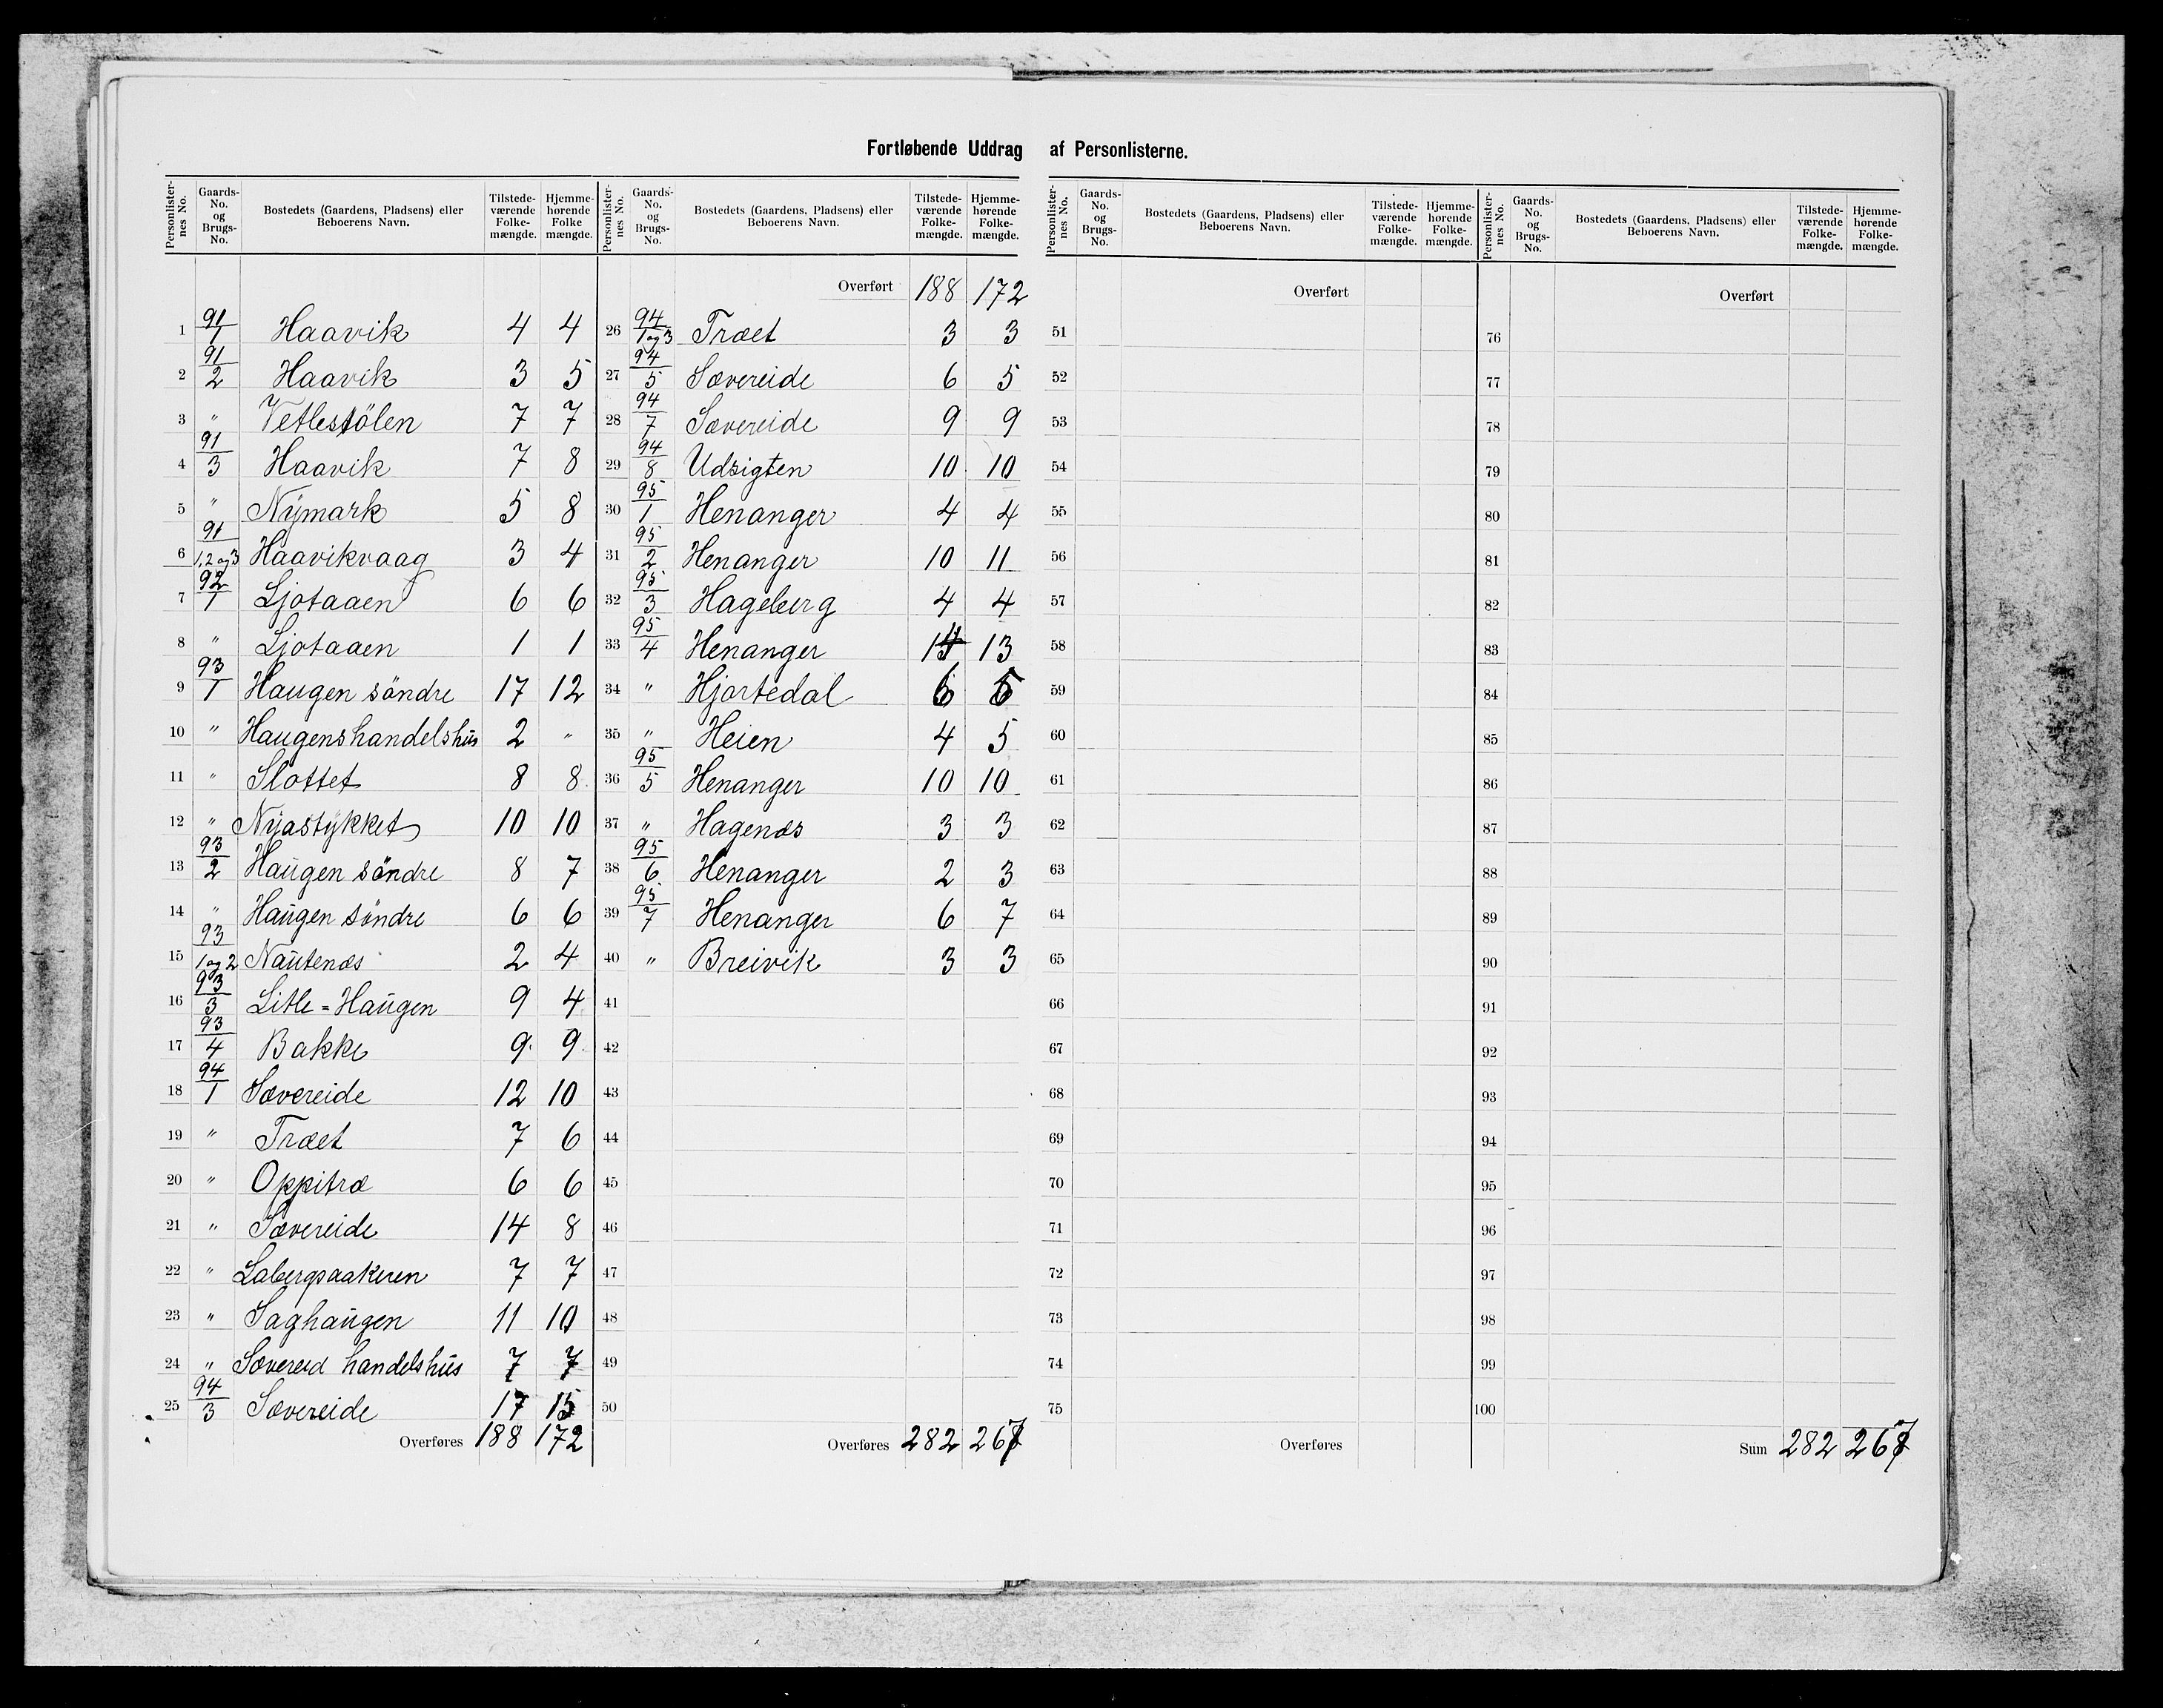 Fortløbende Uddrag af Personlisterne.
Personlister-nes No. | Gaards-No. og Brugs-No. | Bostedets (Gaardens, Pladsens) eller Beboerens Navn. | Tilstede-værende Folke-mængde. | Hjemme-hørende Folke mængde.
1 | 91/1 | Haavik | 4 | 4
2 | 91/2 | Haavik | 3 | 5
3 | " | Vetlestölen | 7 | 7
4 | 91/3 | Haavik | 7 | 8
5 | " | Nymark | 5 | 8
6 | 91/1,2 og 3 | Haavikvaag | 3 | 4
7 | 92/1 | Ljotaaen | 6 | 6
8 | " | Ljotaaen | 1 | 1
9 | 93/1 | Haugen söndre | 17 | 12
10 | " | Haugens handelshus | 2 | "
11 | " | Slottet | 8 | 8
12 | " | Nyastykket | 10 | 10
13 | 93/2 | Haugen söndre | 8 | 7
14 | " | Haugen söndre | 6 | 6
15 | 93/1 og 2 | Nautenæs | 2 | 4
16 | 93/3 | Litle=Haugen | 9 | 4
17 | 93/4 | Bakke | 9 | 9
18 | 94/1 | Sævereide | 12 | 10
19 | " | Træet | 7 | 6
20 | " | Oppitræ | 6 | 6
21 | " | Sævereide | 14 | 8
22 | " | Labergsaakeren | 7 | 7
23 | " | Saghaugen | 11 | 10
24 | " | Sævereid handelshus | 7 | 7
25 | 94/3 | Sævereide | 17 | 15
Overføres | 188 | 172
Personlister-nes No. | Gaards-No. og Brugs-No. | Bostedets (Gaardens, Pladsens) eller Beboerens Navn. | Tilstede-værende Folke-mængde. | Hjemme-hørende Folke-mængde.
Overført | 188 | 172
26 | 94/1 og 3 | Træet | 3 | 3
27 | 94/5 | Sævereide | 6 | 5
28 | 94/7 | Sævereide | 9 | 9
29 | 94/8 | Udsigten | 10 | 10
30 | 95/1 | Henanger | 4 | 4
31 | 95/2 | Henanger | 10 | 11
32 | 95/3 | Hageberg | 4 | 4
33 | 95/4 | Henanger | 14 | 13
34 | " | Hjortedal | 6 | 5
35 | " | Heien | 4 | 5
36 | 95/5 | Henanger | 10 | 10
37 | " | Hagenæs | 3 | 3
38 | 95/6 | Henanger | 2 | 3
39 | 95/7 | Henanger | 6 | 7
40 | " | Breivik | 3 | 3
41
42
43
44
45
46
47
48
49
50
Overføres | 282 | 267
Personlister-nes No. | Gaards-No. og Brugs-No. | Bostedets (Gaardens, Pladsens) eller Beboerens Navn. | Tilstede-værende Folke-mængde. | Hjemme-hørende Folke-mængde.
Overført
51
52
53
54
55
56
57
58
59
60
61
62
63
64
65
66
67
68
69
70
71
72
73
74
75
Overføres
Personlister-nes No. | Gaards-No. og Brugs-No. | Bostedets (Gaardens, Pladsens) eller Beboerens Navn. | Tilstede-værende Folke-mængde. | Hjemme-hørende Folke-mængde.
Overført
76
77
78
79
80
81
82
83
84
85
86
87
88
89
90
91
92
93
94
95
96
97
98
99
100
Sum | 282 | 267